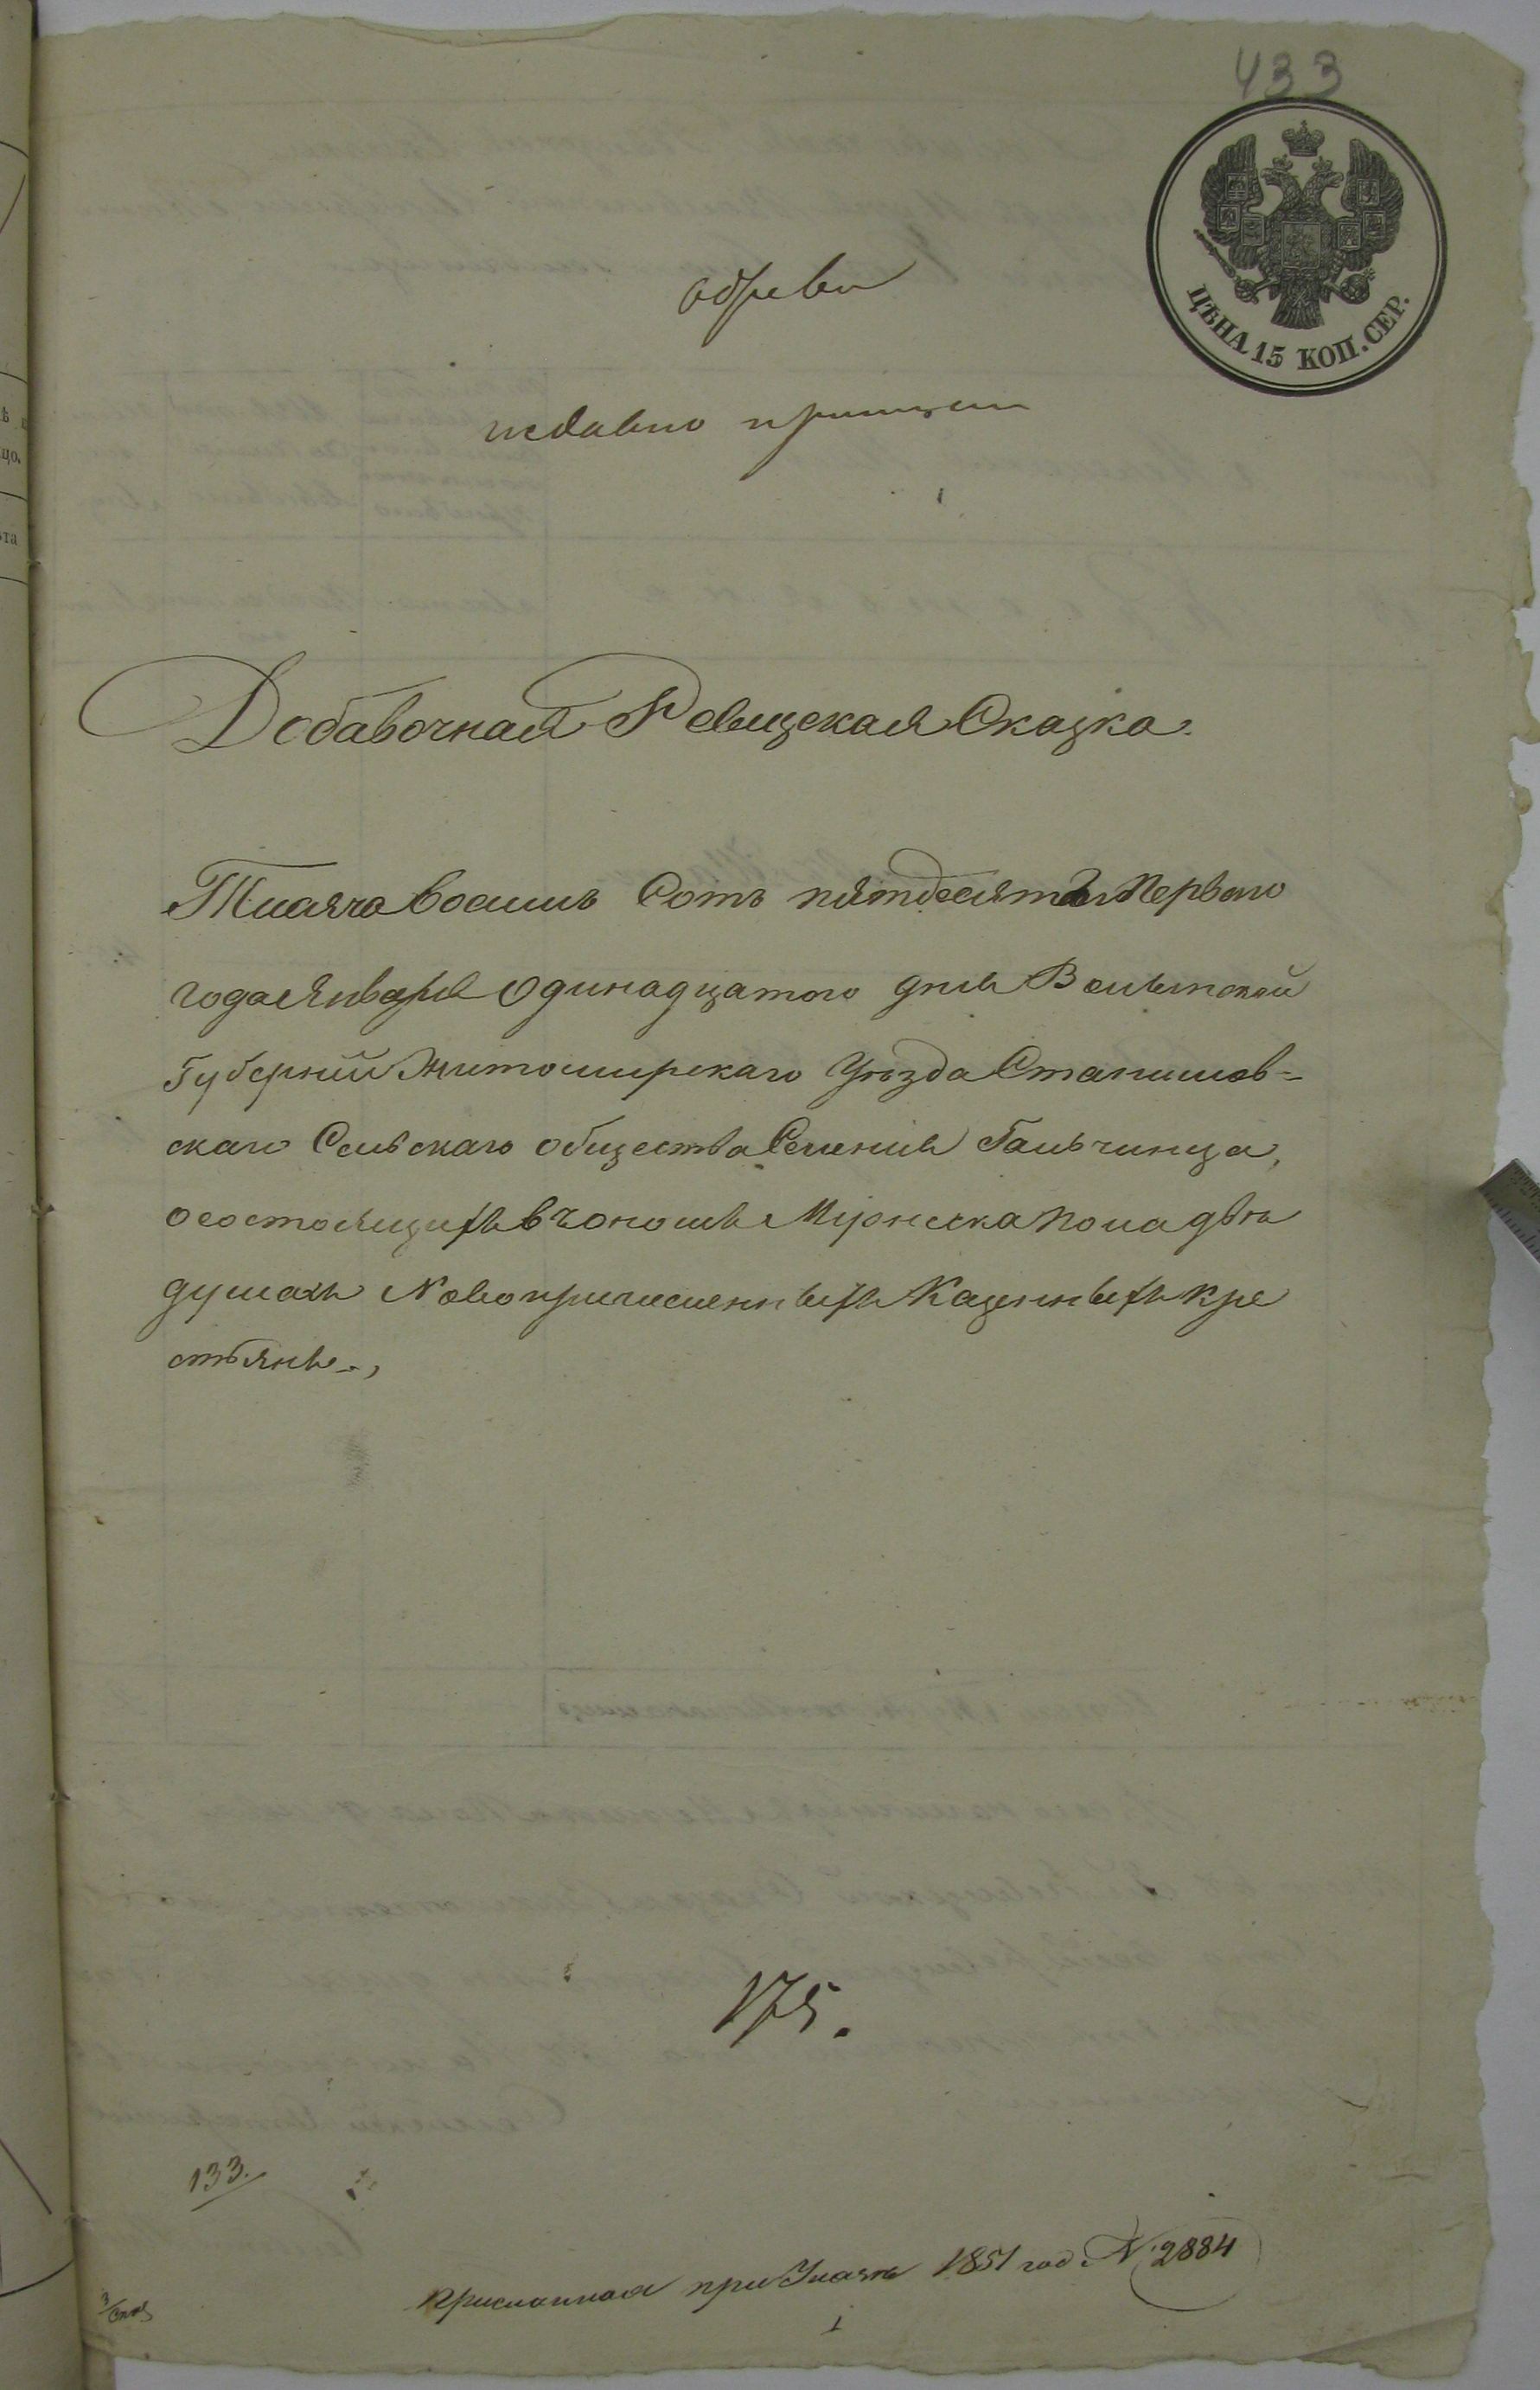 433
ЦѢНА 15 КОП. СЕР.
недавно
Добавочная Ревизская Сказка.
Тысяча восемь Сотъ пятдесятъ Перваго
года Января Одинадцатого дня Волынской
Губерніи Житомирскаго Уѣзда Станишов-
скаго Сельскаго общества Селенія Гальчинца,
о состоящихъ въ ономъ Мужеска пола двѣ
душахъ Новопричисленныхъ Казенныхъ Кре
стьянъ.,
175.
133.
присланная при 1851 год № 2884
1